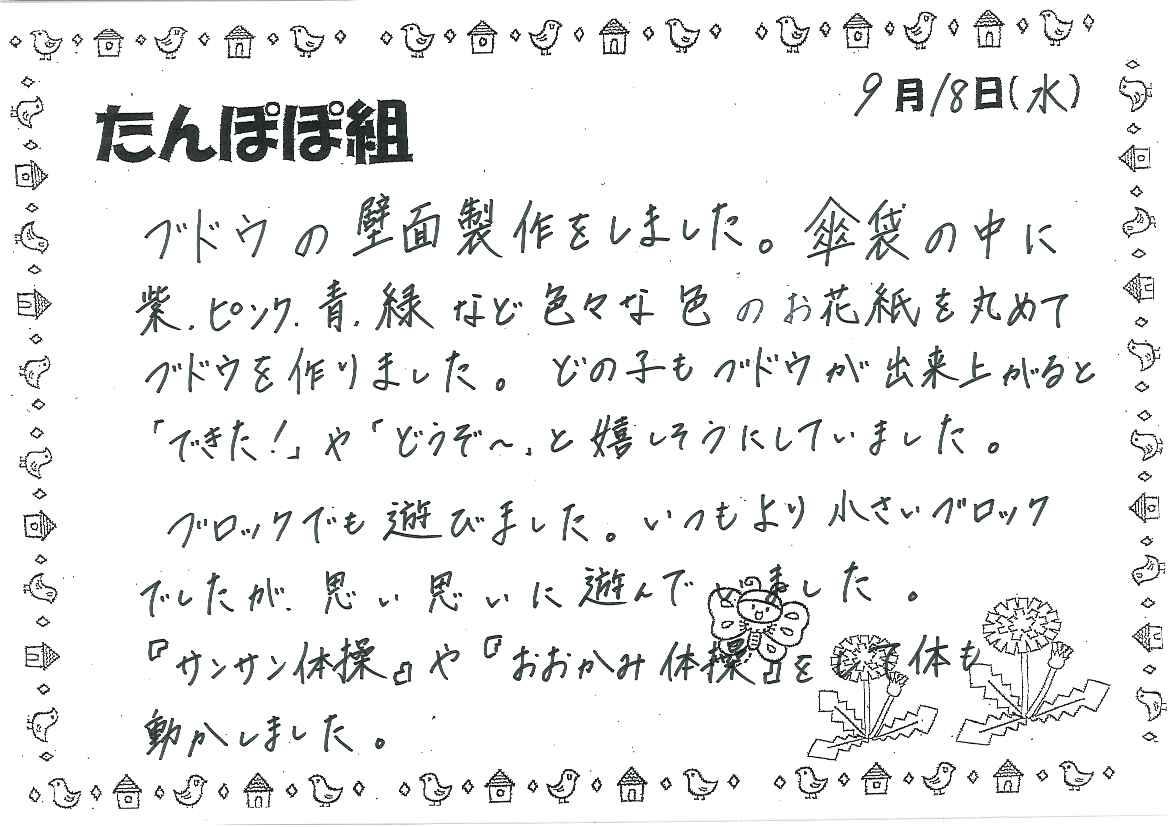 9月18日(水)
たんぽぽ組
ブドウの壁面製作をしました。傘袋の中に
紫、ピンク、青、緑など色々な色のお花紙を丸めて
ブドウを作りました。どの子もブドウが出来上がると
「できた!」や「どうぞ〜」と嬉しそうにしていました。
ブロックでも遊びました。いつもより小さいブロック
でしたが、思い思いに遊んでいました。
『サンサン体操』や『おおかみ体操』をして体も
動かしました。